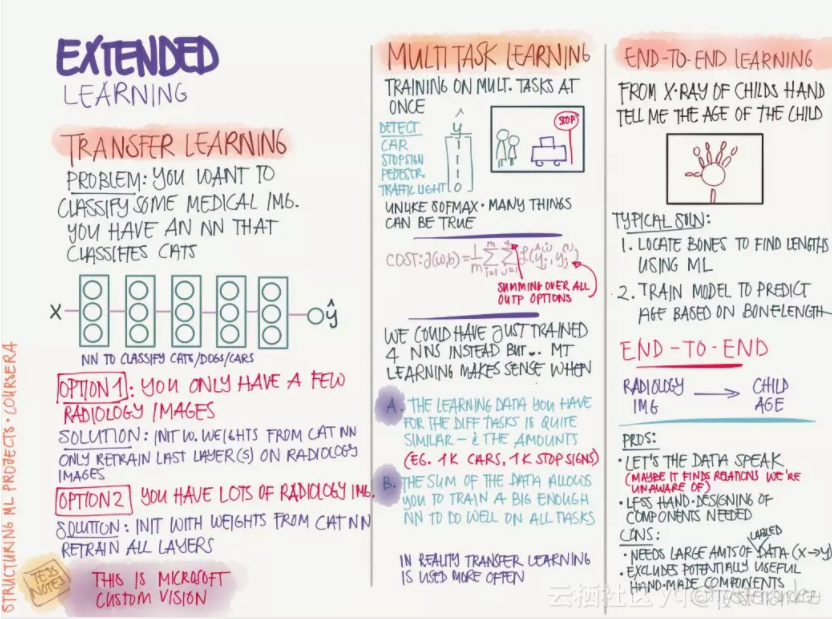 EXTENDED
LEARNING
TRANSFER LEARNING
PROBLEM: YOU WANT TO
CLASSIFY SOME MEDICAL IMG.
YOU HAVE AN NN THAT
CLASSIFIES CATS
X ŷ
NN TO CLASSIFY CATS/DOGS/CARS
OPTION 1: YOU ONLY HAVE A FEW
RADIOLOGY IMAGES
SOLUTION: INIT W. WEIGHTS FROM CAT NN
ONLY RETRAIN LAST LAYER(S) ON RADIOLOGY
IMAGES
OPTION 2 YOU HAVE LOTS OF RADIOLOGY IMG.
SOLUTION: INIT WITH WEIGHTS FROM CAT NN
RETRAIN ALL LAYERS
THIS IS MICROSOFT
CUSTOM VISION
TESS
NOTES
STRUCTURING ML PROJECTS · COURSERA
MULTI TASK LEARNING
TRAINING ON MULT. TASKS AT
ONCE
DETECT
CAR
STOPSIGN
PEDESTR
TRAFFIC LIGHT
ŷ
1
0
STOP
UNLIKE SOFMAX · MANY THINGS
CAN BE TRUE
COST: J(w,b) = 1/m Σ i=1 m Σ j=1 4 L(ŷj(i), yj(i))
SUMMING OVER ALL
OUTP OPTIONS
WE COULD HAVE JUST TRAINED
4 NNS INSTEAD BUT... MT
LEARNING MAKES SENSE WHEN
A. THE LEARNING DATA YOU HAVE
FOR THE DIFF TASKS IS QUITE
SIMILAR - & THE AMOUNTS
(EG. 1K CARS, 1K STOP SIGNS)
B. THE SUM OF THE DATA ALLOWS
YOU TO TRAIN A BIG ENOUGH
NN TO DO WELL ON ALL TASKS
IN REALITY TRANSFER LEARNING
IS USED MORE OFTEN
END-TO-END LEARNING
FROM X-RAY OF CHILDS HAND
TELL ME THE AGE OF THE CHILD
TYPICAL SOLN:
1. LOCATE BONES TO FIND LENGTHS
USING ML
2. TRAIN MODEL TO PREDICT
AGE BASED ON BONELENGTH
END-TO-END
RADIOLOGY → CHILD
IMG AGE
PROS:
· LET'S THE DATA SPEAK
(MAYBE IT FINDS RELATIONS WE'RE
UNAWARE OF)
· LESS HAND-DESIGNING OF
COMPONENTS NEEDED
CONS:
LABLED
· NEEDS LARGE AMTS OF DATA (X→Y)
· EXCLUDES POTENTIALLY USEFUL
HAND-MADE COMPONENTS
云栖社区